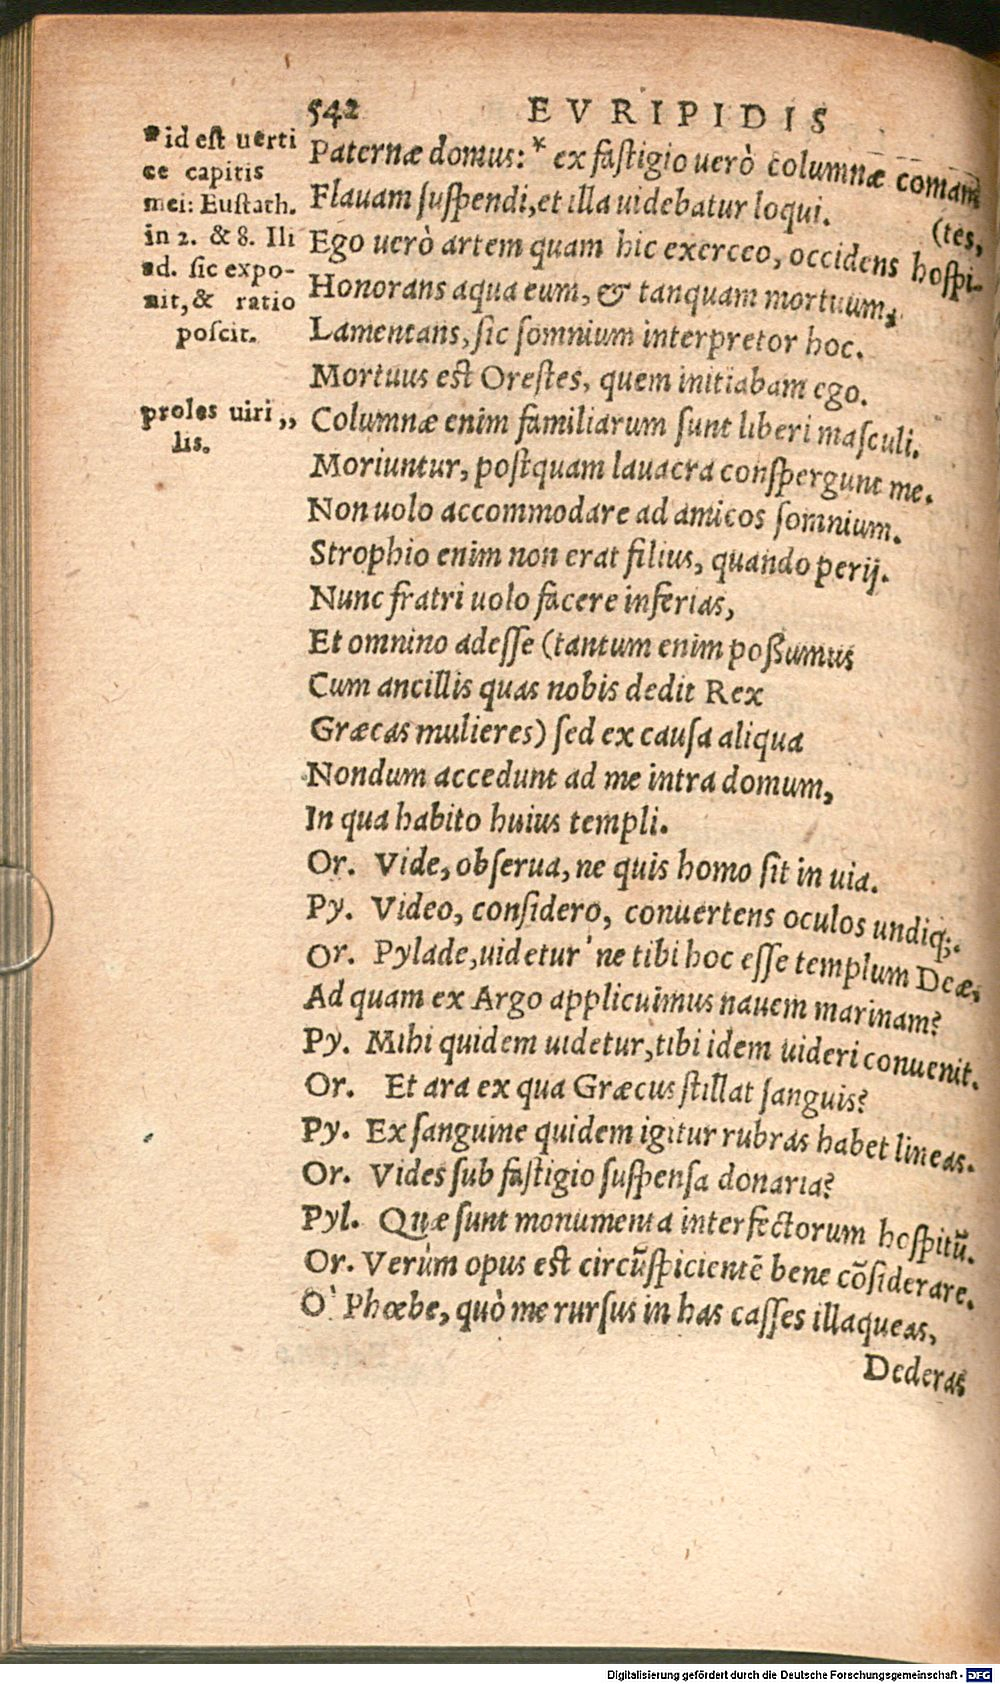 542 EVRIPIDIS
*id est uerti
ce capitis
mei: Eustath.
in 2. & 8. Ili
ad. sic expo-
nit, & ratio
poscit.
proles uiri „
lis.
Paternæ domus: * ex fastigio uerò columnæ comam
Flauam suspendi, et illa uidebatur loqui. (tes,
Ego uerò artem quam hic exerceo, occidens hospi-
Honorans aqua eum, & tanquam mortuum,
Lamentans, sic somnium interpretor hoc.
Mortuus est Orestes, quem initiabam ego.
Columnæ enim familiarum sunt liberi masculi.
Moriuntur, postquam lauacra conspergunt me.
Non uolo accommodare ad amicos somnium.
Strophio enim non erat filius, quando perij.
Nunc fratri uolo facere inferias,
Et omnino adesse (tantum enim poßumus
Cum ancillis quas nobis dedit Rex
Græcas mulieres) sed ex causa aliqua
Nondum accedunt ad me intra domum,
In qua habito huius templi.
Or. Vide, obserua, ne quis homo sit in uia.
Py. Video, considero, conuertens oculos undiq;.
Or. Pylade, uidetur'ne tibi hoc esse templum Deæ,
Ad quam ex Argo applicuimus nauem marinam?
Py. Mihi quidem uidetur, tibi idem uideri conuenit.
Or. Et ara ex qua Græcus stillat sanguis?
Py. Ex sanguine quidem igitur rubras habet lineas.
Or. Vides sub fastigio suspensa donaria?
Pyl. Quæ sunt monumenta interfectorum hospitũ.
Or. Verùm opus est circũspicientẽ bene cõsiderare.
O' Phœbe, quò me rursus in has casses illaqueas,
Dederas
Digitalisierung gefördert durch die Deutsche Forschungsgemeinschaft - DFG